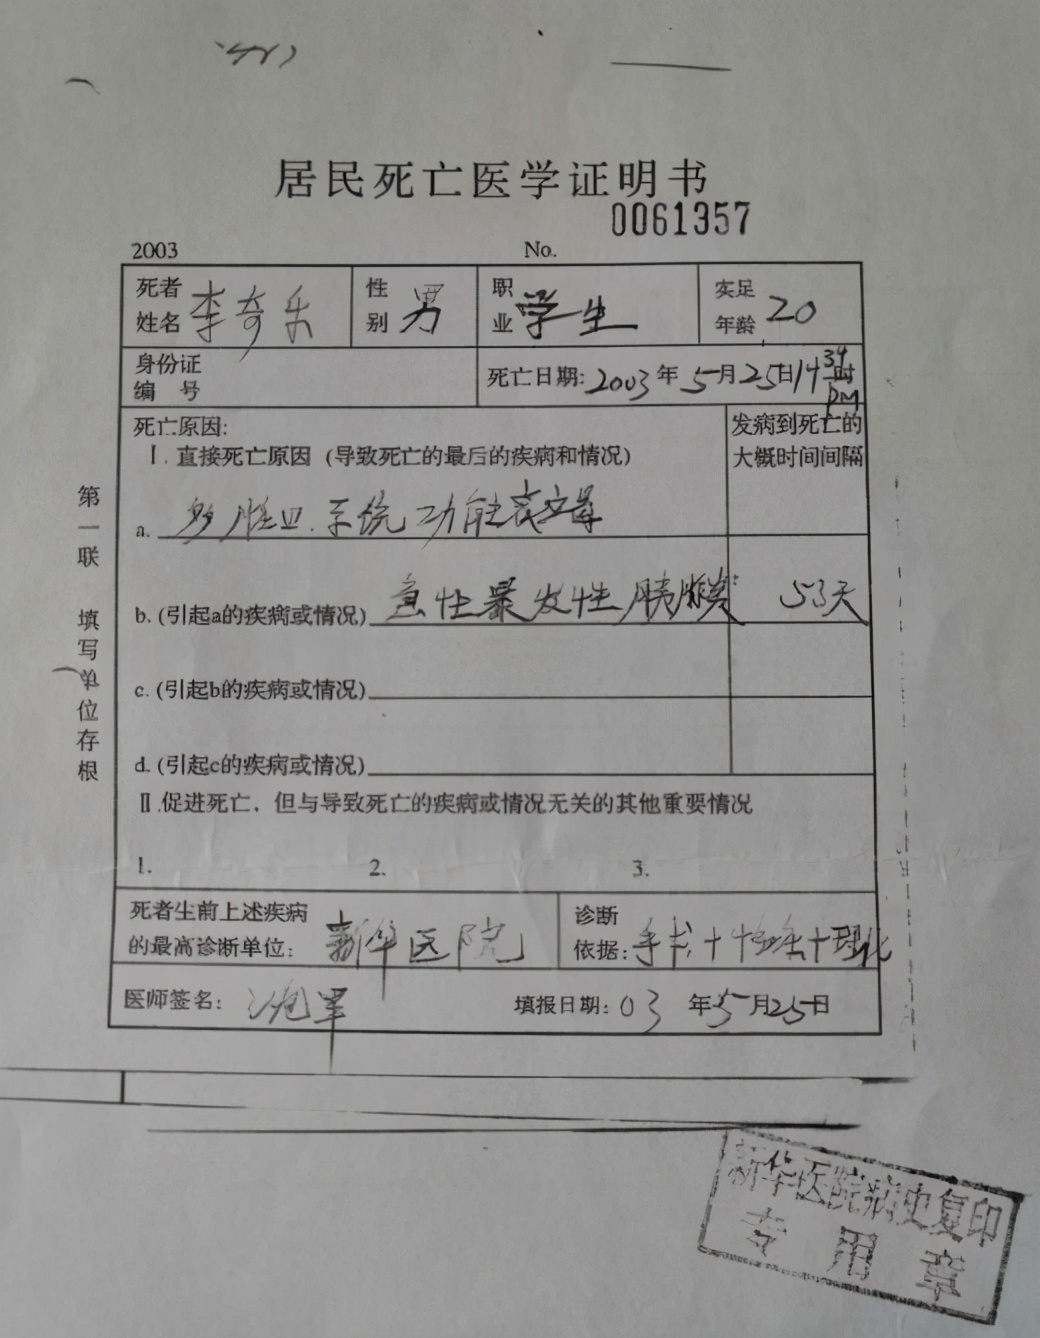 居民死亡医学证明书
0061357
2003 No.
死者姓名 李奇乐 性别 男 职业 学生 实足年龄 20
身份证编号 死亡日期: 2003年5月25日14 34时 PM
死亡原因: 发病到死亡的大概时间间隔
Ⅰ. 直接死亡原因 (导致死亡的最后的疾病和情况)
a. 多脏皿.系统功能衰竭
b. (引起a的疾病或情况) 急性暴发性胰腺炎 53天
c. (引起b的疾病或情况)
d. (引起c的疾病或情况)
Ⅱ.促进死亡、但与导致死亡的疾病或情况无关的其他重要情况
1. 2. 3.
死者生前上述疾病的最高诊断单位: 新华医院 诊断依据: 手书+ +理化
医师签名: 填报日期: 03年5月25日
第一联 填写单位存根
新华医院病史复印
专用章